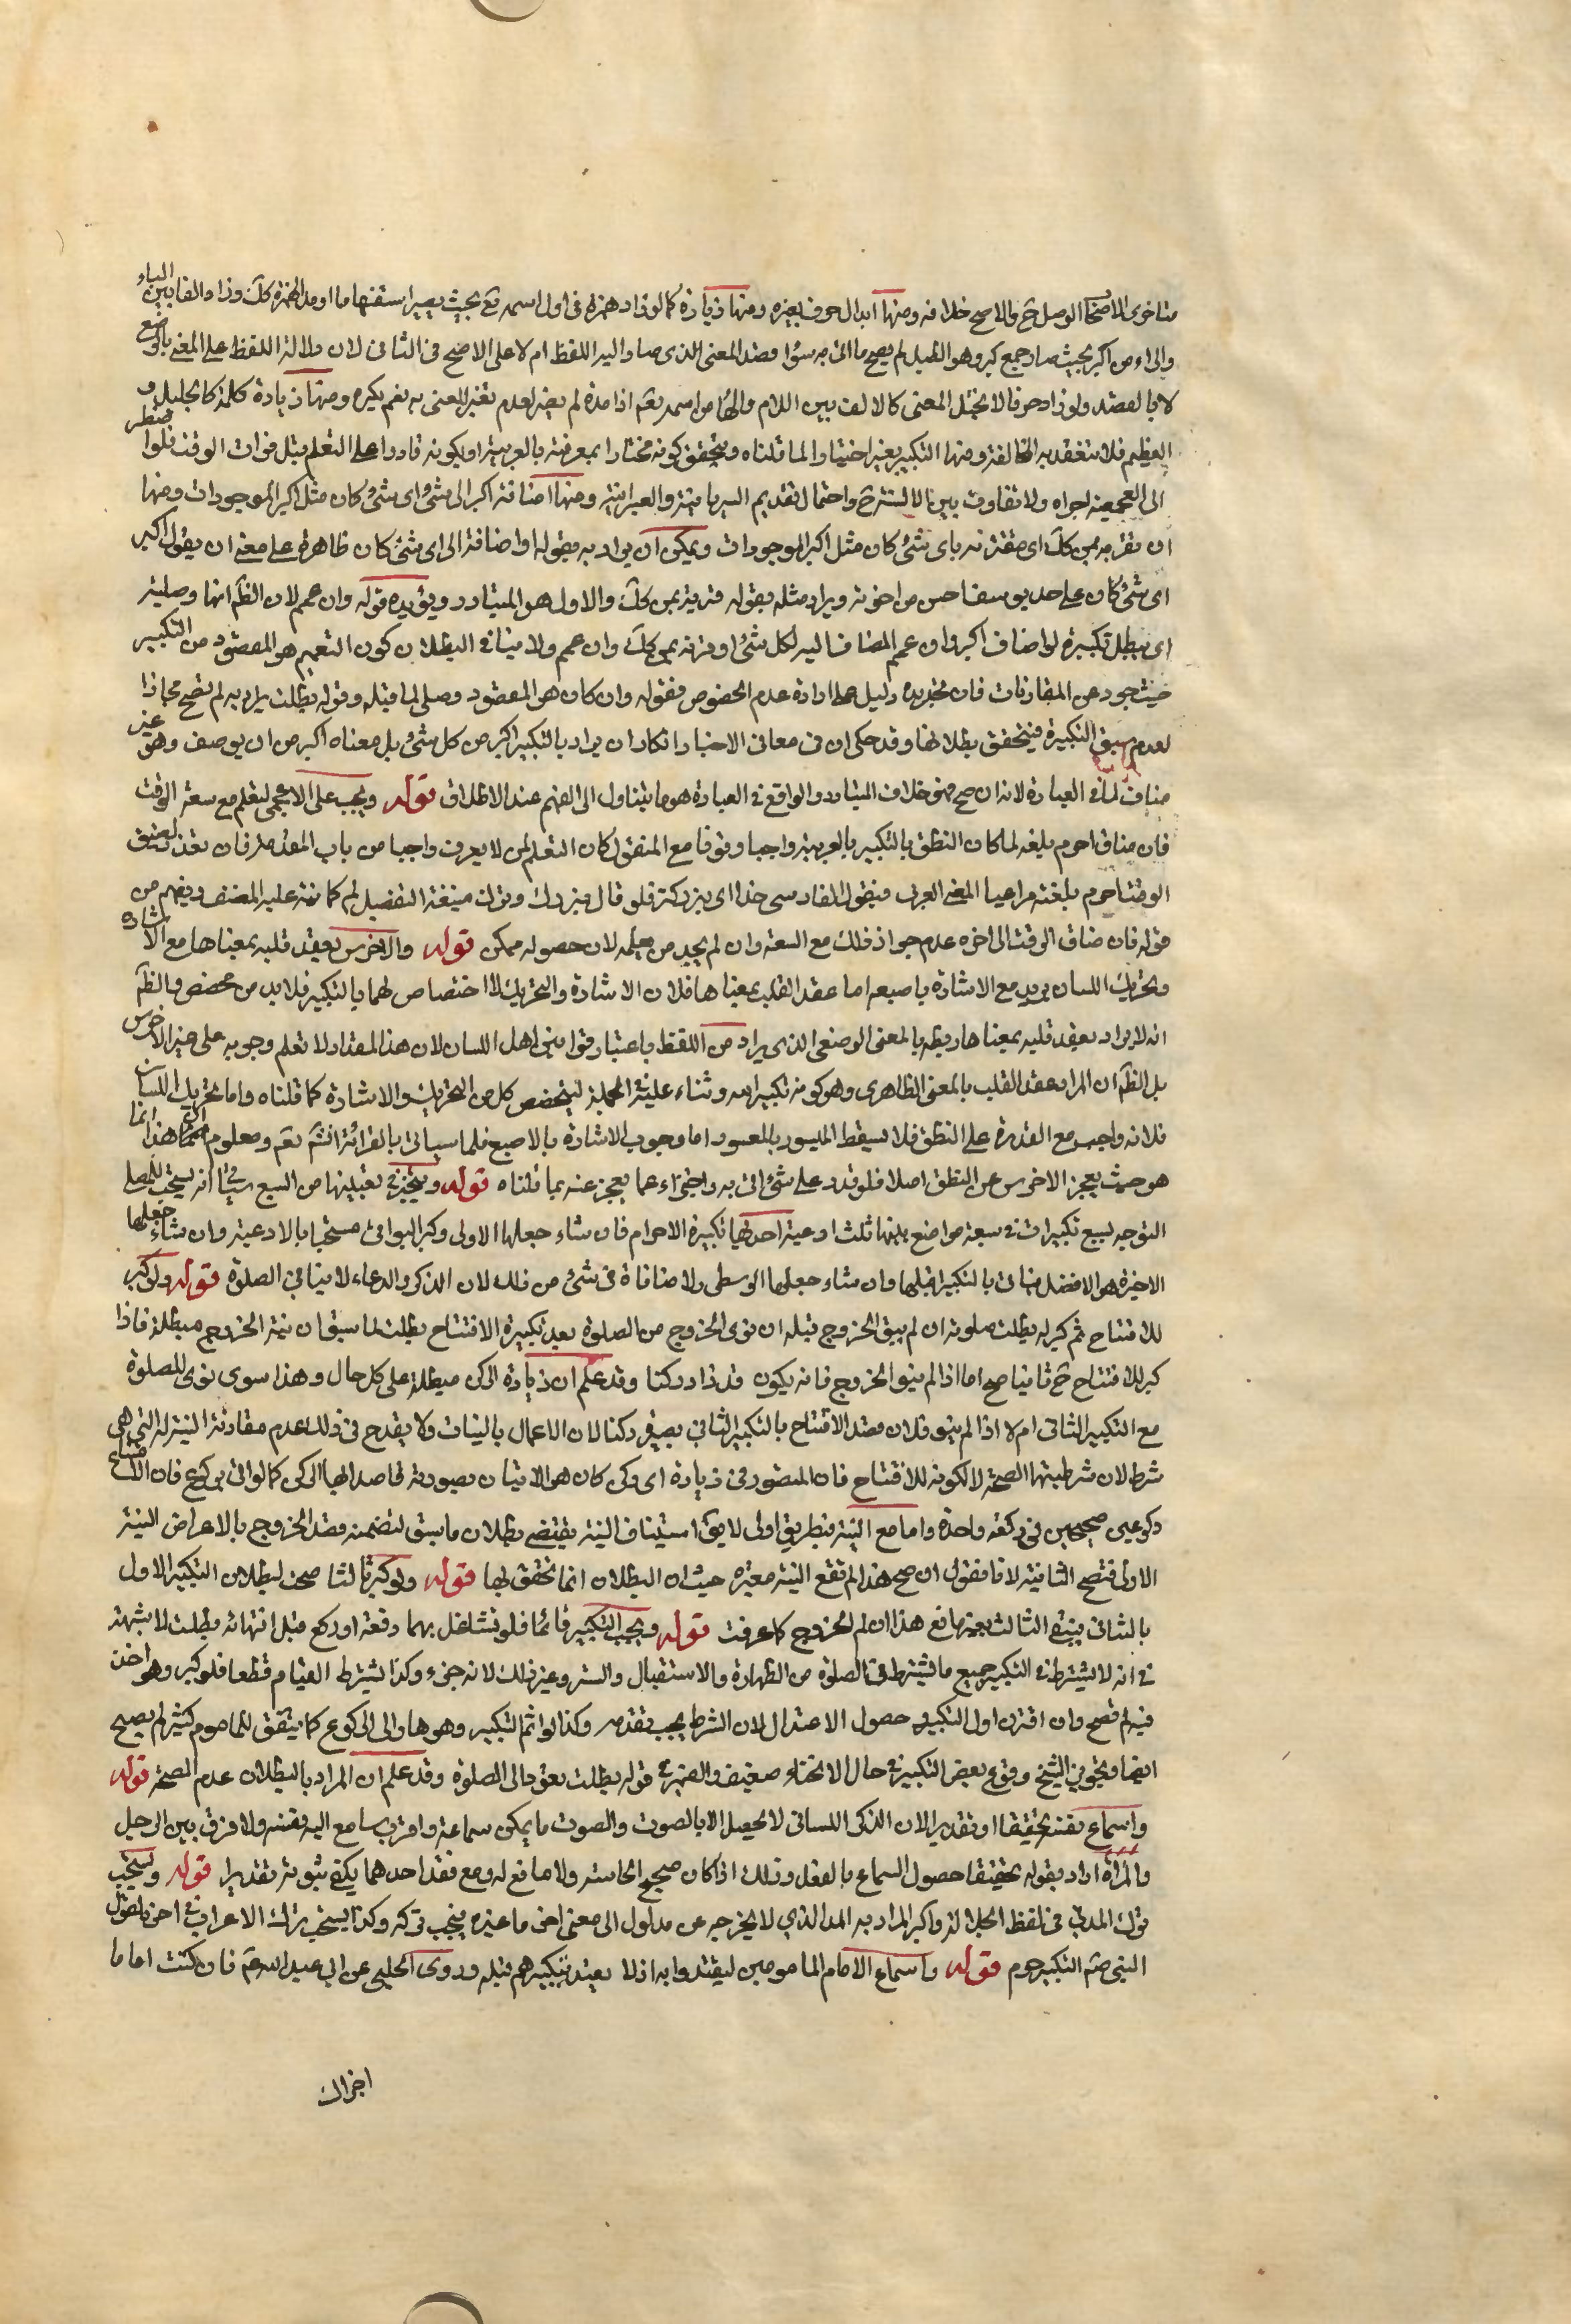 متاخرى الاصحاب الوصل ح والاصح خلافه ومنها ابدال حرف بغيره ومنها زيادة كما لو زاد همزة فى اول اسمه تع بحيث يصير استفهاما او مد الهمزة كك وزاد الفا بين الباء
والراء من اكبر بحيث صار جمع كبر وهو الطبل لم يصح ما اتى به سواء قصد المعنى الذى صار اليه اللفظ ام لا على الاصح فى الثانى لان دلالة اللفظ على المعنى بالوضع
لا بالقصد ولو زاد حرفا لا يختل المعنى كالالف بين اللام والهاء من اسمه تعم اذا مده لم يضر لعدم تغير المعنى به نعم يكره ومنها زيادة كلمة كالجليل و
العظيم فلا تنعقد به المخالفة ومنها التكبير بغيره اختيارا لما قلناه ويتحقق كونه مختارا بمعرفته بالعربية او بكونه قادرا على التعلم قبل فوات الوقت فلو اضطر
الى العجمية اجزاه ولا تفاوت بين الالسنة ح واحتمال تقديم السريانية والعبرانية ومنها اضافة اكبر الى شئ اى شئ كان مثل اكبر الموجودات ومنها
ان يقرنه بمن كك اى مقترنه باى شئ كان مثل اكبر الموجودات ويمكن ان يراد به بقوله او اضافة الى اى شئ كان ظاهره على معنى ان يقول اكبر
اى شئ كان على حد يوسف احسن من اخوته ويراد مثله بقوله قرينة بمن كك والاول هو المتبادر ويؤيده قوله وان عمم لان الظ انها وصلية
اى تبطل تكبيرة لو اضاف اكبر وان عمم المضاف اليه لكل شئ او قرنه بمن كك وان عمم ولا ينافى البطلان كون التعميم هو المقصود من التكبير
حيث جرد عن المقارنات فان تجريده دليل على ارادة عدم الخصوص فقوله وان كان هو المقصود وصلى لما قبله وقوله بطلت يراد به لم تصح مجازا
لعدم سبق التكبيرة فيتحقق بطلانها وقد حكى ان فى معانى الاخبار انكار ان يراد بالتكبير اكبر من كل شئ بل معناه اكبر من ان يوصف وهو غير
مناف لما فى العبارة لانه ان صح فهو خلاف المتبادر والواقع فى العبادة هو ما يتبادر الى الفهم عند الاطلاق قوله ويجب على الاعجمى ليتعلم مع سعة الوقت
فان ضاق احرم بلغته لما كان النطق بالتكبير بالعربية واجبا وقوفا مع المنقول كان التعلم لمن لا يعرف واجبا من باب المقدمة فان تعذر لضيق
الوقت احرم بلغته مراعيا المعنى العربى فيقول الفارسى خدا اى بزركتر فلو قال بزرك وترك صيغة التفضيل لم كما نبه عليه المصنف ويفهم من
قوله فان ضاق الوقت الى اخره عدم جواز ذلك مع السعة وان لم يجد من يعلمه لان حصوله ممكن قوله والاخرس يعقد قلبه بمعناها مع الاشارة
وتحريك اللسان يريد مع الاشارة باصبعه اما عقد القلب بمعناها فلان الاشارة والتحريك لا اختصاص لهما بالتكبير فلا بد من مخصص والظ
انه لا يراد بعقد قلبه بمعناها ربطه بالمعنى الوضعى الذى يراد من اللفظ باعتبار قوانين اهل اللسان لان هذا المقدار لا تعلم وجوبه على غير الاخرس
بل الظ ان المراد عقد القلب بالمعنى الظاهرى وهو كونه تكبير الله وثناء عليه فى الجملة ليتخصص كل من التحريك والاشارة كما قلناه واما تحريك اللسان
فلانه واجب مع القدرة على النطق فلا يسقط الميسور بالمعسور اما وجوب الاشارة بالاصبع فلما سياتى بالقرائة انش تعم ومعلوم ان هذا انما
هو حيث يعجز الاخرس عن النطق اصلا فلو قدر على شئ اتى به واجتزاء عما يعجز عنه بما قلناه قوله ويتخير فى تعيينها من السبع سياتى انه يستحب للمصلى
التوجه بسبع تكبيرات فى سبعة مواضع بينها ثلث ادعية احدها تكبيرة الاحرام فان شاء جعلها الاولى وكبر البواقى مستحبا بالادعية وان شاء جعلها
الاخيرة هو الافضل فياتى بالتكبير قبلها وان شاء جعلها الوسطى ولا منافاة فى شئ من ذلك لان الذكر والدعاء لا ينافى الصلوة قوله ولو كبر
للافتتاح ثم كبر له بطلت صلوته ان لم ينو الخروج قبله ان نوى الخروج من الصلوة بعد تكبيرة الافتتاح بطلت لما سبق ان نية الخروج مبطلة فاذا
كبر للافتتاح ح ثانيا صح اما اذا لم ينو الخروج فانه يكون قد زاد ركنا وقد علم ان زيادة الركن مبطلة على كل حال وهذا سوى نوى للصلوة
مع التكبير الثانى ام لا اذا لم ينو فلان قصد الافتتاح بالتكبير الثانى يصير ركنا لان الاعمال بالنيات ولا يقدح فى ذلك عدم مقارنة النية له التى هى
شرط لان شرطيتها الصحة لا لكونه للافتتاح فان المتصور فى زيادة اى ركن كان هو الاتيان بصورته قاصدا بها الركن كما لو اتى بركوع فان امتناع
ركوعين صحيحين فى ركعة واحدة واما مع النية فبطريق اولى لا يق استيناف النية يقتضى بطلان ما سبق لتضمنه قصد الخروج بالاعراض النية
الاولى فتصح الثانية لانا نقول ان صح هذا لم تقع النية معتبرة حيث ان البطلان انما تحقق بها قوله ولو كبر ثالثا صحت لبطلان التكبير الاول
بالثانى فيبقى الثالث بغير مانع هذا ان لم الخروج كما عرفت قوله ويجب التكبير قائما فلو تشاغل بهما دفعة او ركع قبل انتهائه بطلت لا شبهة
فى انه لا يشترط فى التكبير جميع ما يشترط فى الصلوة من الطهارة والاستقبال والستر وغير ذلك لانه جزء وكذا يشترط القيام قطعا فلو كبر وهو اخذ
فيه لم تصح وان اقترن اول التكبير حصول الاعتدال لان الشرط يجب تقدمه وكذا لو اتم التكبير وهو هاو الى الركوع كما يتفق للماموم كثيرا لم يصح
ايضا وتجويز الشيخ وقوع بعض التكبيرة حال الانحناء ضعيف والضمير فى قوله بطلت يعود الى الصلوة وقد علم ان المراد بالبطلان عدم الصحة قوله
واسماع نفسه تحقيقا او تقديرا لان الذكر اللسانى لا يحصل الا بالصوت والصوت ما يمكن سماعه واقرب سامع اليه نفسه ولا فرق بين الرجل
والمراة اراد بقوله تحقيقا حصول السماع بالفعل وذلك اذا كان صحيح الحاسة ولا مانع له ومع فقد احدهما يكفى ثبوته تقديرا قوله ويستحب
ترك المد فى لفظ الجلالة واكبر المراد به المد الذى لا يخرجه عن مدلول الى معنى اخر ما غيره فيجب تركه وكذا يستحب ترك الاعراب فى اخره لقول
النبى صم التكبير جزم قوله واسماع الامام المامومين ليقتدوا به اذ لا يعتد بتكبيرهم قبله وروى الحلبى عن ابى عبد الله ع فان كنت اماما
اجزاك